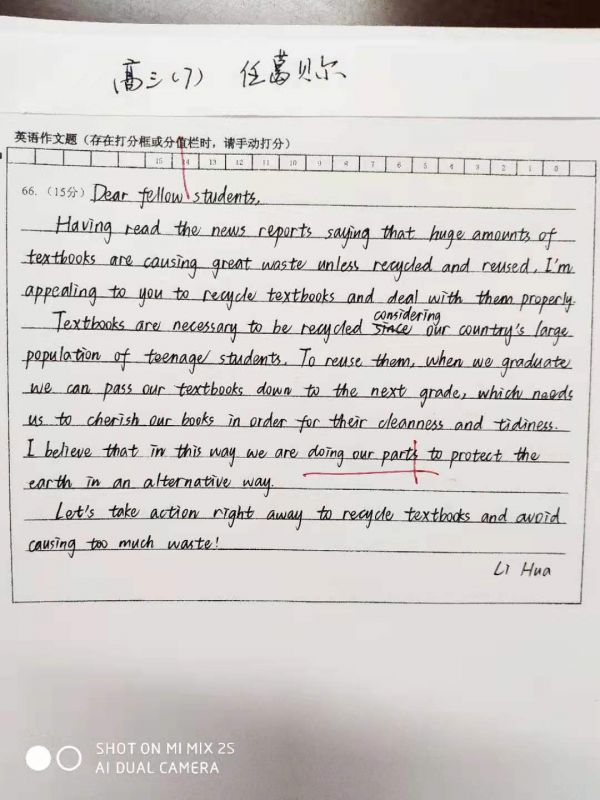 高三(7) 任葛贝尔
英语作文题(存在打分框或分值栏时,请手动打分)
15 14 13 12 11 10 9 8 7 6 5 4 3 2 1 0
66. (15分) Dear fellow students,
Having read the news reports saying that huge amounts of
textbooks are causing great waste unless recycled and reused, I'm
appealing to you to recycle textbooks and deal with them properly.
considering
Textbooks are necessary to be recycled since our country's large
population of teenage students. To reuse them, when we graduate
we can pass our textbooks down to the next grade, which needs
us to cherish our books in order for their cleanness and tidiness.
I believe that in this way we are doing our parts to protect the
earth in an alternative way.
Let's take action right away to recycle textbooks and avoid
causing too much waste!
Li Hua
SHOT ON MI MIX 2S
AI DUAL CAMERA